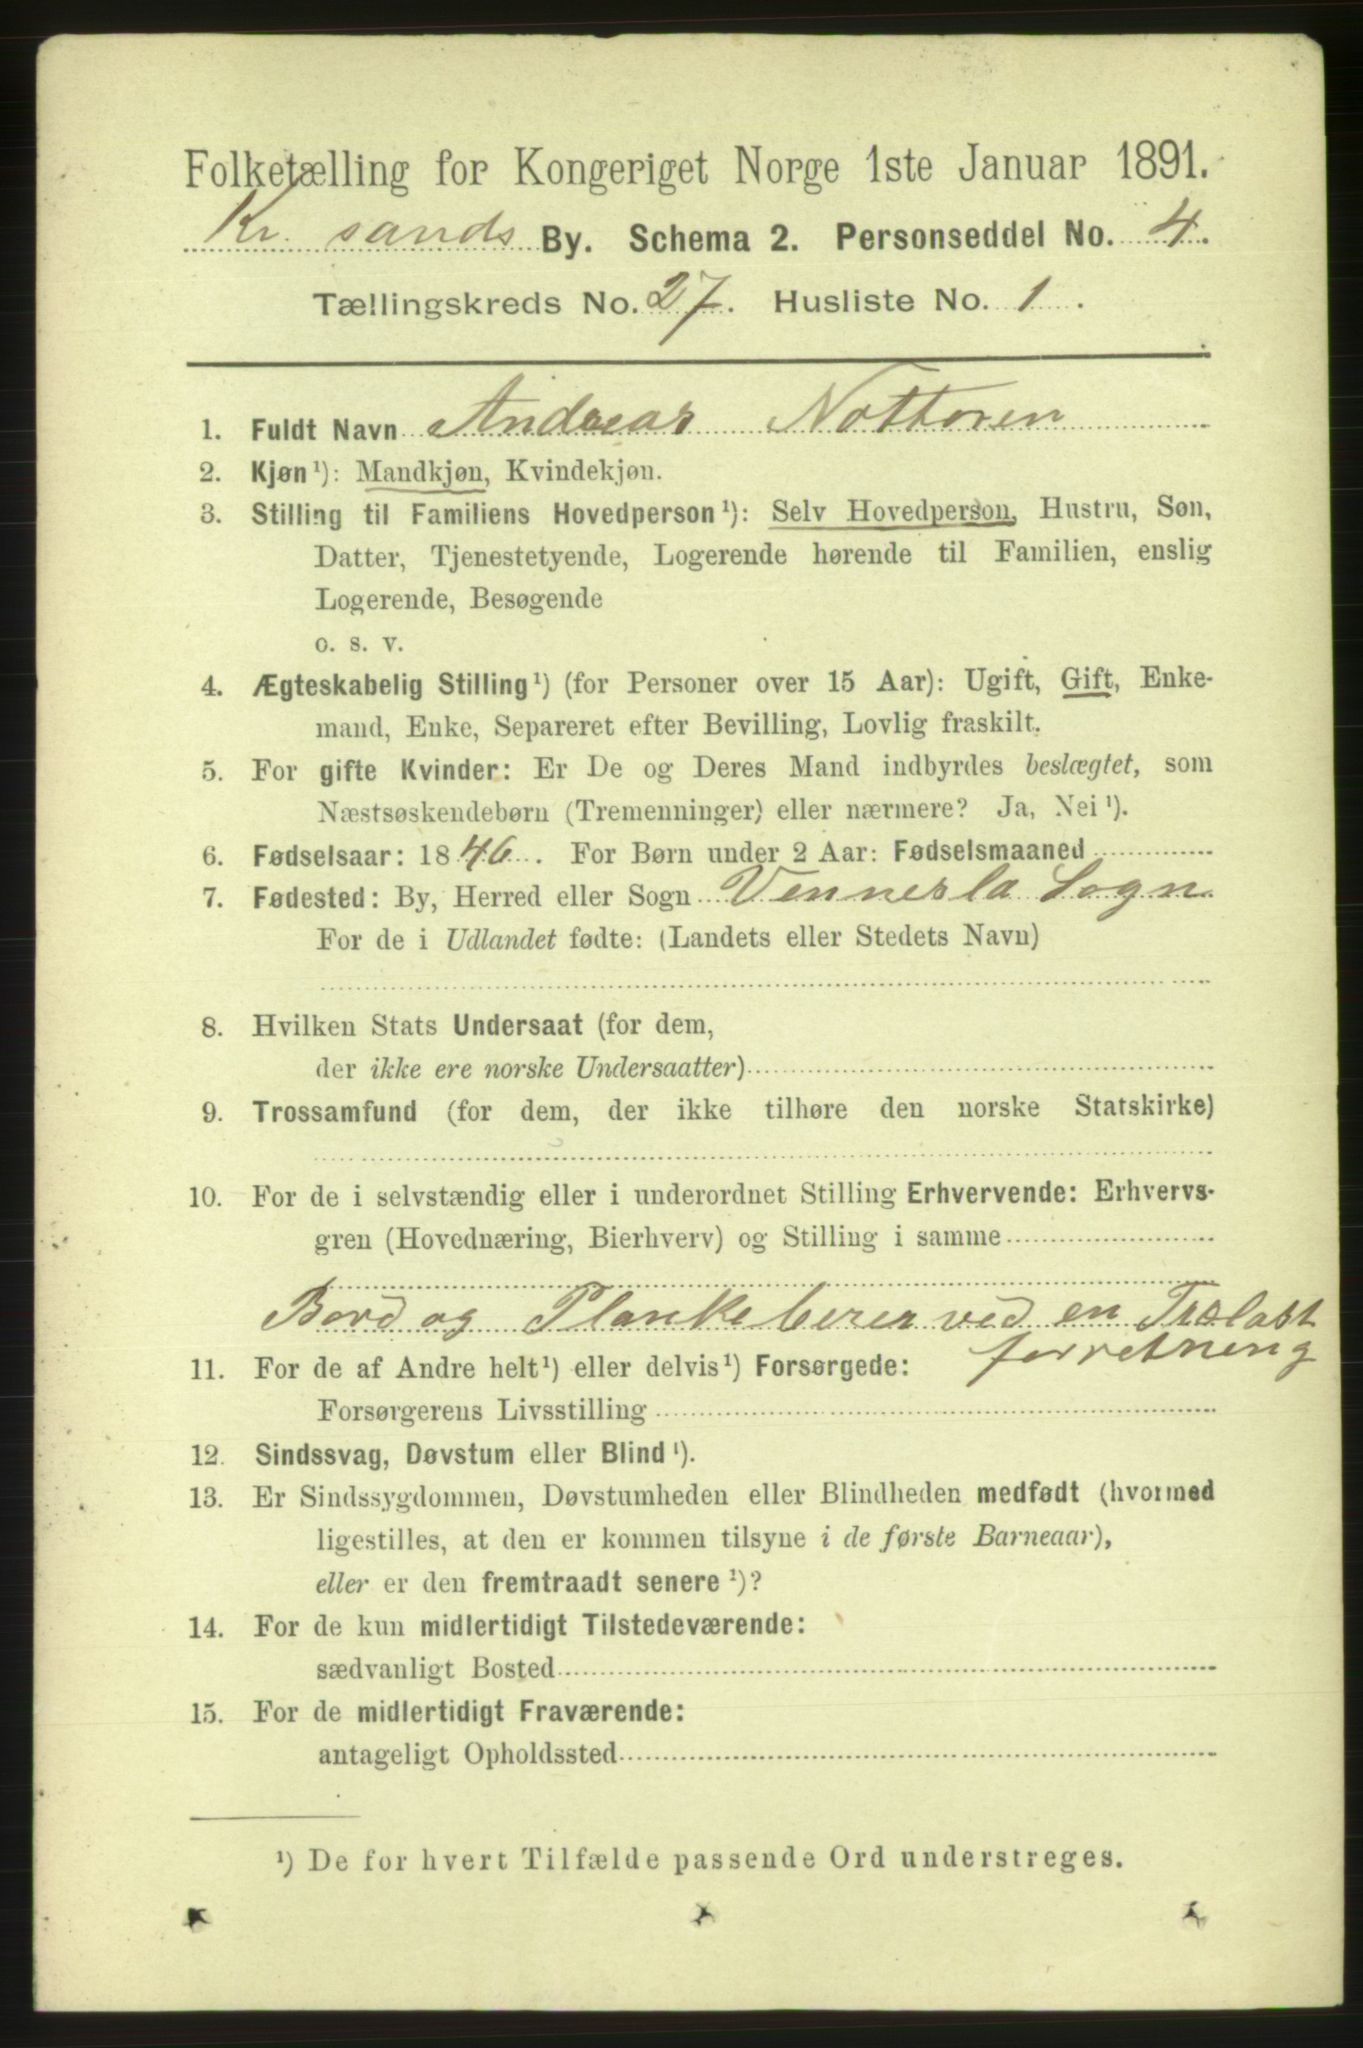 Folketælling for Kongeriget Norge 1ste Januar 1891.
Kr. sands By. Schema 2. Personseddel No. 4.
Tællingskreds No. 27. Husliste No. 1.
1. Fuldt Navn Andreas Nottoren
2. Kjøn¹): Mandkjøn, Kvindekjøn.
3. Stilling til Familiens Hovedperson¹): Selv Hovedperson, Hustru, Søn,
Datter, Tjenestetyende, Logerende hørende til Familien, enslig
Logerende, Besøgende
o. s. v.
4. Ægteskabelig Stilling¹) (for Personer over 15 Aar): Ugift, Gift, Enke-
mand, Enke, Separeret efter Bevilling, Lovlig fraskilt.
5. For gifte Kvinder: Er De og Deres Mand indbyrdes beslægtet, som
Næstsøskendebørn (Tremenninger) eller nærmere? Ja, Nei¹).
6. Fødselsaar: 1846. For Børn under 2 Aar: Fødselsmaaned
7. Fødested: By, Herred eller Sogn Vennesla Sogn
For de i Udlandet fødte: (Landets eller Stedets Navn)
8. Hvilken Stats Undersaat (for dem,
der ikke ere norske Undersaatter)
9. Trossamfund (for dem, der ikke tilhøre den norske Statskirke)
10. For de i selvstændig eller i underordnet Stilling Erhvervende: Erhvervs-
gren (Hovednæring, Bierhverv) og Stilling i samme
Bord og Planke berer ved en Trælast
forretning
11. For de af Andre helt¹) eller delvis¹) Forsørgede:
Forsørgerens Livsstilling
12. Sindssvag, Døvstum eller Blind¹).
13. Er Sindssygdommen, Døvstumheden eller Blindheden medfødt (hvormed
ligestilles, at den er kommen tilsyne i de første Barneaar),
eller er den fremtraadt senere¹)?
14. For de kun midlertidigt Tilstedeværende:
sædvanligt Bosted
15. For de midlertidigt Fraværende:
antageligt Opholdssted
¹) De for hvert Tilfælde passende Ord understreges.